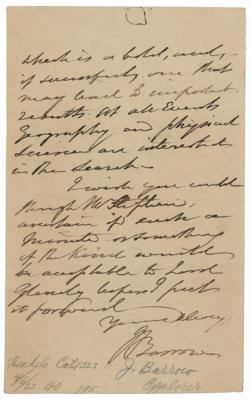 which is a bold, and,
if successful, one that
may lead to important
results. At all Events
Geography and physical
science are interested
in the search.
I wish you could
through Mr Stephen,
ascertain if such a
Minute or something
of the kind would
be acceptable to Lord
Glenelg before I put
it forward.
Yours always,
J Barrow
J. Barrow
Explorer